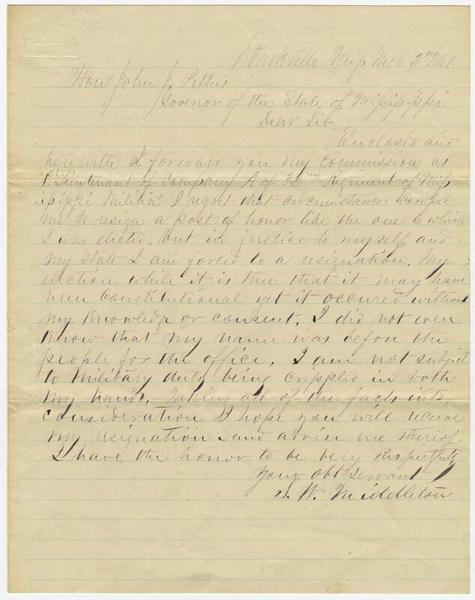 Starkville Miss
Hon John J. Pettus
Govenor of the State of Missisippi
Dear Sir
Enclosed and
herewith I forward you my commission as
Lieutenant of Company A of 32nd Regiment of Miss
issippi Militia I regret that circumstances compel
me to resign a post of honor like the one to which
I was elected, but in justice to myself and
my state I am forced to a resignation. My
election while it is true that it may have
been constitutional yet it occured without
my knowledge or consent. I did not even
know that my name was before the
people for the office. I am not subject
to Military duty being crippled in both
my hands. Taking all of the facts into
consideration I hope you will receive
my resignation and advise me thereof
I have the honor to be very respectfully
Your obt servant
S. W. Middleton